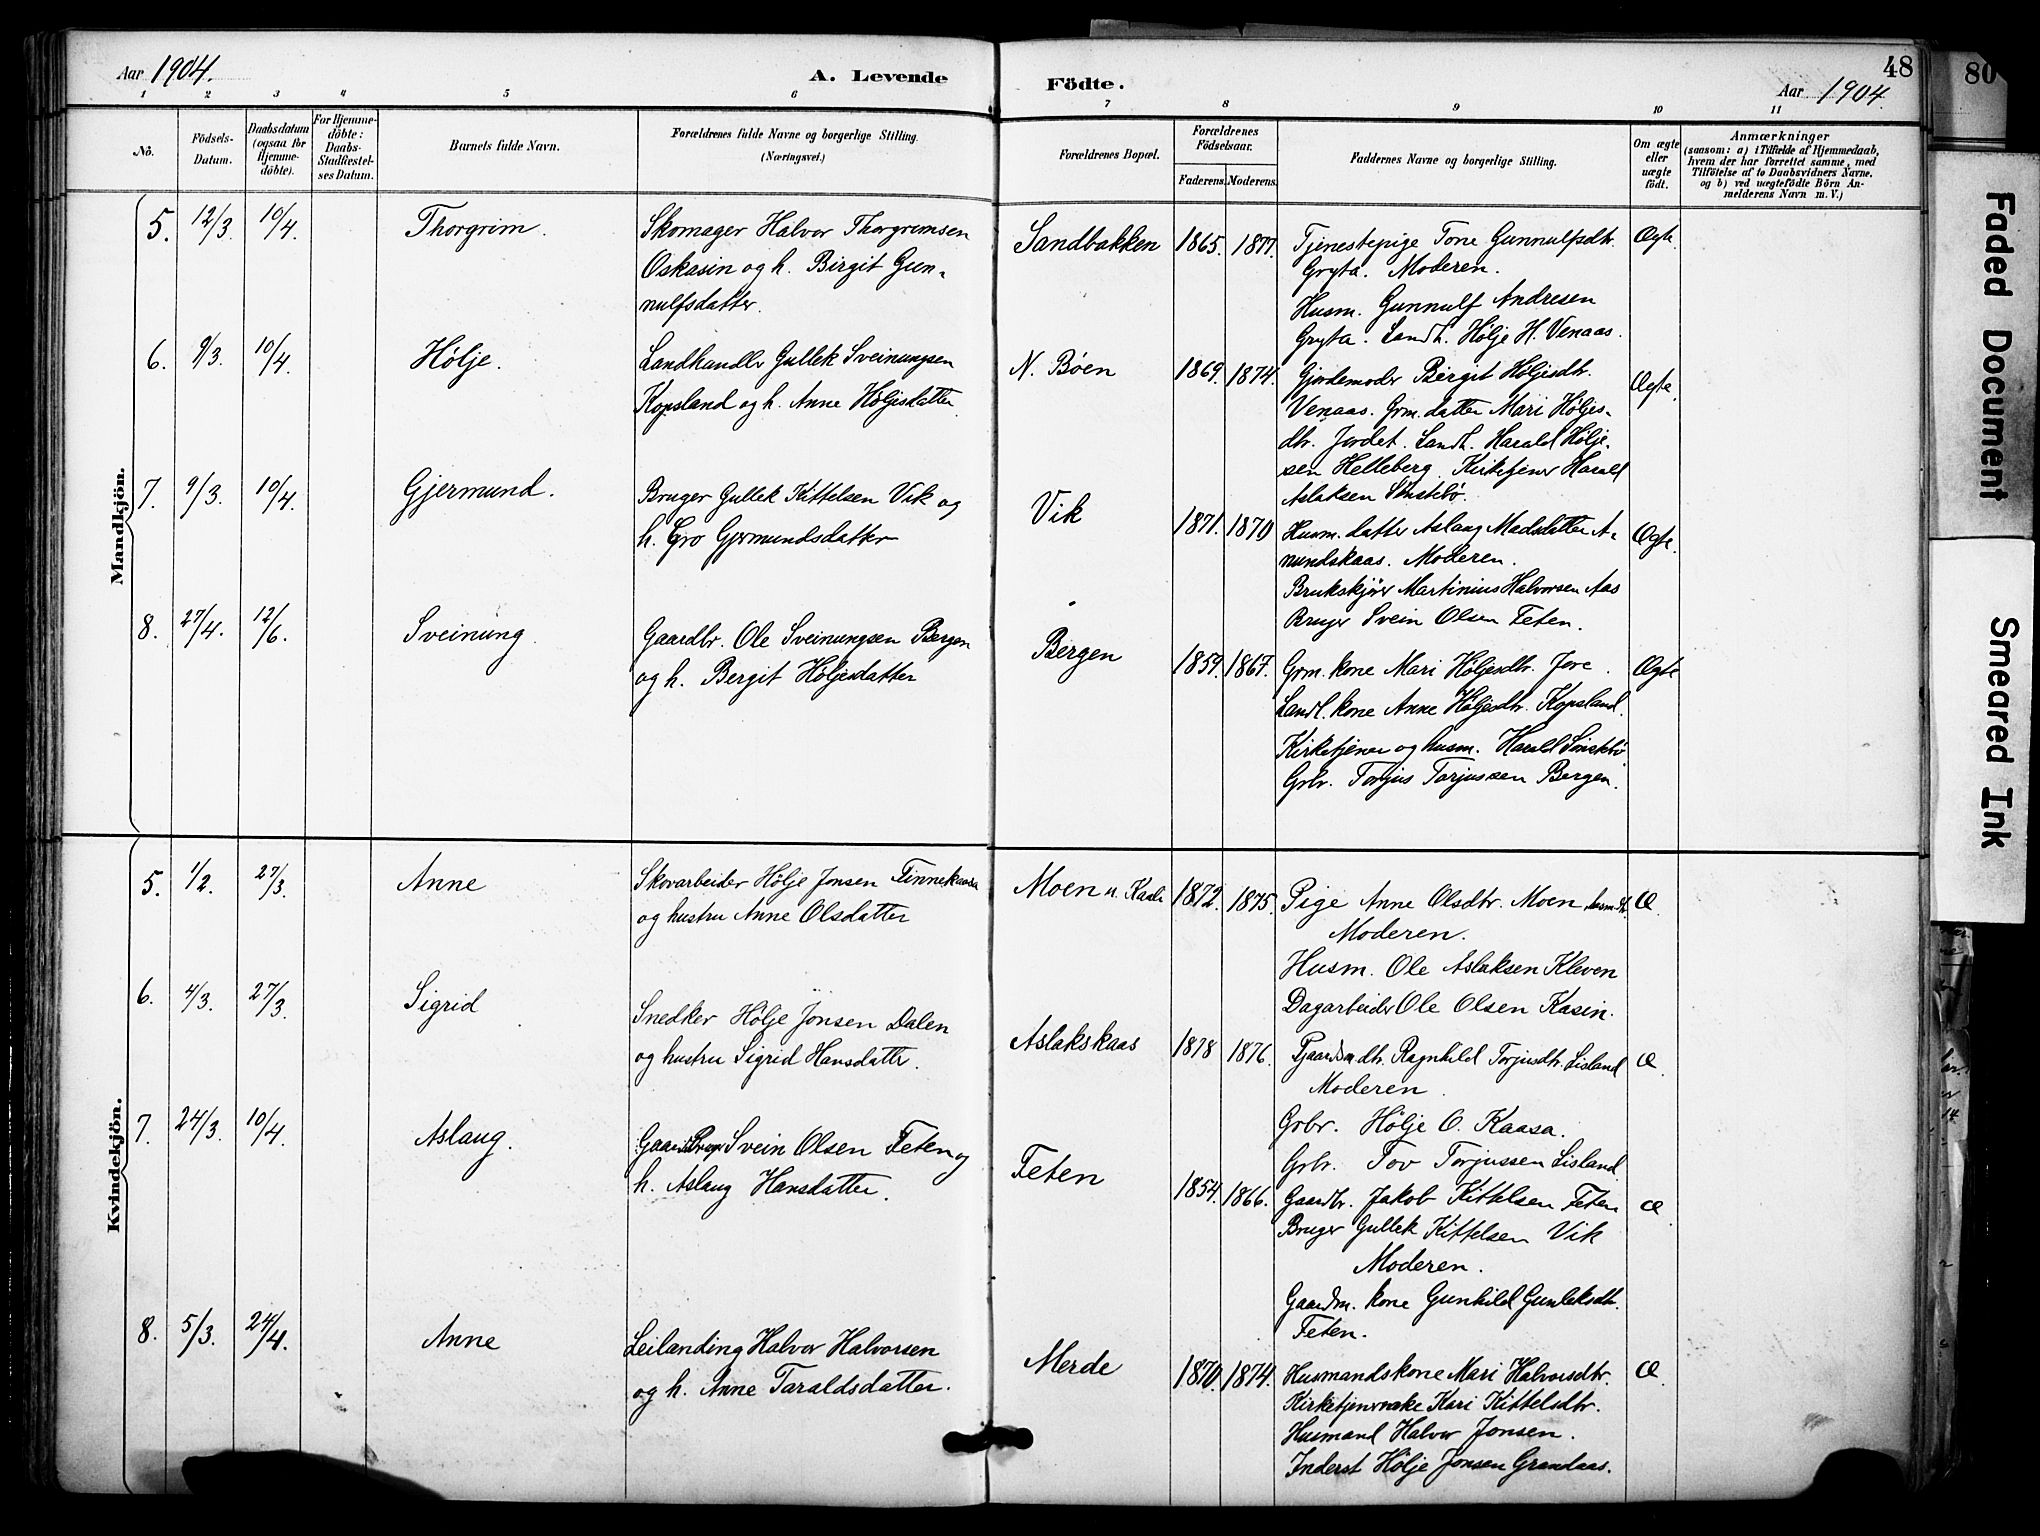 Aar 1904.
A. Levende
Födte.
48
Aar 1904.
80
1 2 3 4 5 6 7 8 9 10 11
No.
Födsels-Datum.
Daabsdatum (ogsaa for Hjemme-döbte).
For Hjemme-döbte: Daabs-Stadfæstel-ses Datum.
Barnets fulde Navn.
Forældrenes fulde Navne og borgerlige Stilling.
(Næringsvei.)
Forældrenes Bopæl.
Forældrenes Födselsaar.
Faderens. Moderens.
Faddernes Navne og borgerlige Stilling.
Om ægte eller uægte födt.
Anmærkninger
(saasom: a) i Tilfælde af Hjemmedaab,
hvem der har forrettet samme, med
Tilföielse af to Daabsvidners Navne.
og b) ved uægtefödte Börn An-
melderens Navn m. V.)
Mandkjön.
5. 12/3. 10/4. Thorgrim.
Skomager Halvor Thorgrimsen
Oskasin og h. Birgit Gun-
nulfsdatter.
Sandbakken 1865. 1877.
Tjenestepige Tone Gunnulfsdtr.
Gryta. Moderen.
Husm. Gunnulf Andresen
Gryta. Landh. Hølje H. Venaas.
Ægte.
6. 9/3. 10/4. Hølje.
Landhandlr Gullek Sveinungsen
Kopsland og h. Anne Høljesdatter.
N. Bøen 1869. 1874.
Gjordemoder Bergit Høljesdtr.
Venaas. Grm. datter Mari Høljes-
dtr. Jordet. Landh. Harald Hølje-
sen Helleberg. Kirketjener Harald
Aslaksen Sinstebø.
Ægte.
7. 9/3. 10/4. Gjermund.
Bruger Gullek Kittelsen Vik og
h. Gro Gjermundsdatter
Vik 1871. 1870
Husm. datter Aslaug Madsdatter A-
mundskaas. Moderen.
Brukskjører Martinius Halvorsen Aas
Bruger Svein Olsen Feten.
Ægte.
8. 27/4. 12/6. Sveinung.
Gaardbr. Ole Sveinungsen Bergen
og h. Bergit Høljesdatter
Bergen 1859. 1867.
Grm. kone Mari Høljesdtr. Jore.
Landh. kone Anne Høljesdtr. Kopsland.
Kirketjener og husm. Harald Sinstebø
Grbr. Torjus Torjussen Bergen.
Ægte
Kvindekjön.
5. 1/2. 27/3. Anne
Skovarbeider Hølje Jonsen Finnekaasa
og hustru Anne Olsdatter
Moen u. Kaste 1872. 1875.
Pige Anne Olsdtr. Moen
Moderen.
Husm. Ole Aslaksen Kleven
Dagarbeider Ole Olsen Kasin.
Æ.
6. 4/3. 27/3. Sigrid
Snedker Hølje Jonsen Dalen
og hustru Sigrid Hansdatter.
Aslakskaas 1878 1876.
Gaardm dtr. Ragnhild Torjusdtr. Lisland
Moderen.
Grbr. Hølje O. Kaasa.
Grbr. Tov Torjussen Lisland
Æ.
7. 24/3. 10/4. Aslaug.
Gaardbruger Svein Olsen Feten og
h. Aslaug Hansdatter.
Feten 1854. 1866.
Gaardbr. Jakob Kittelsen Feten
Bruger Gullek Kittelsen Vik
Moderen.
Gaardm. kone Gunhild Gunleksdtr.
Feten.
Æ.
8. 5/3. 24/4. Anne
Leilænding Halvor Halvorsen
og h. Anne Taraldsdatter.
Merde 1870. 1874.
Husmandskone Mari Halvorsdtr.
Kirketjenerenke Kari Kittelsdtr.
Husmand Halvor Jonsen.
Inderst Hølje Jonsen Grandaas.
Æ.
Faded Document
Smeared Ink